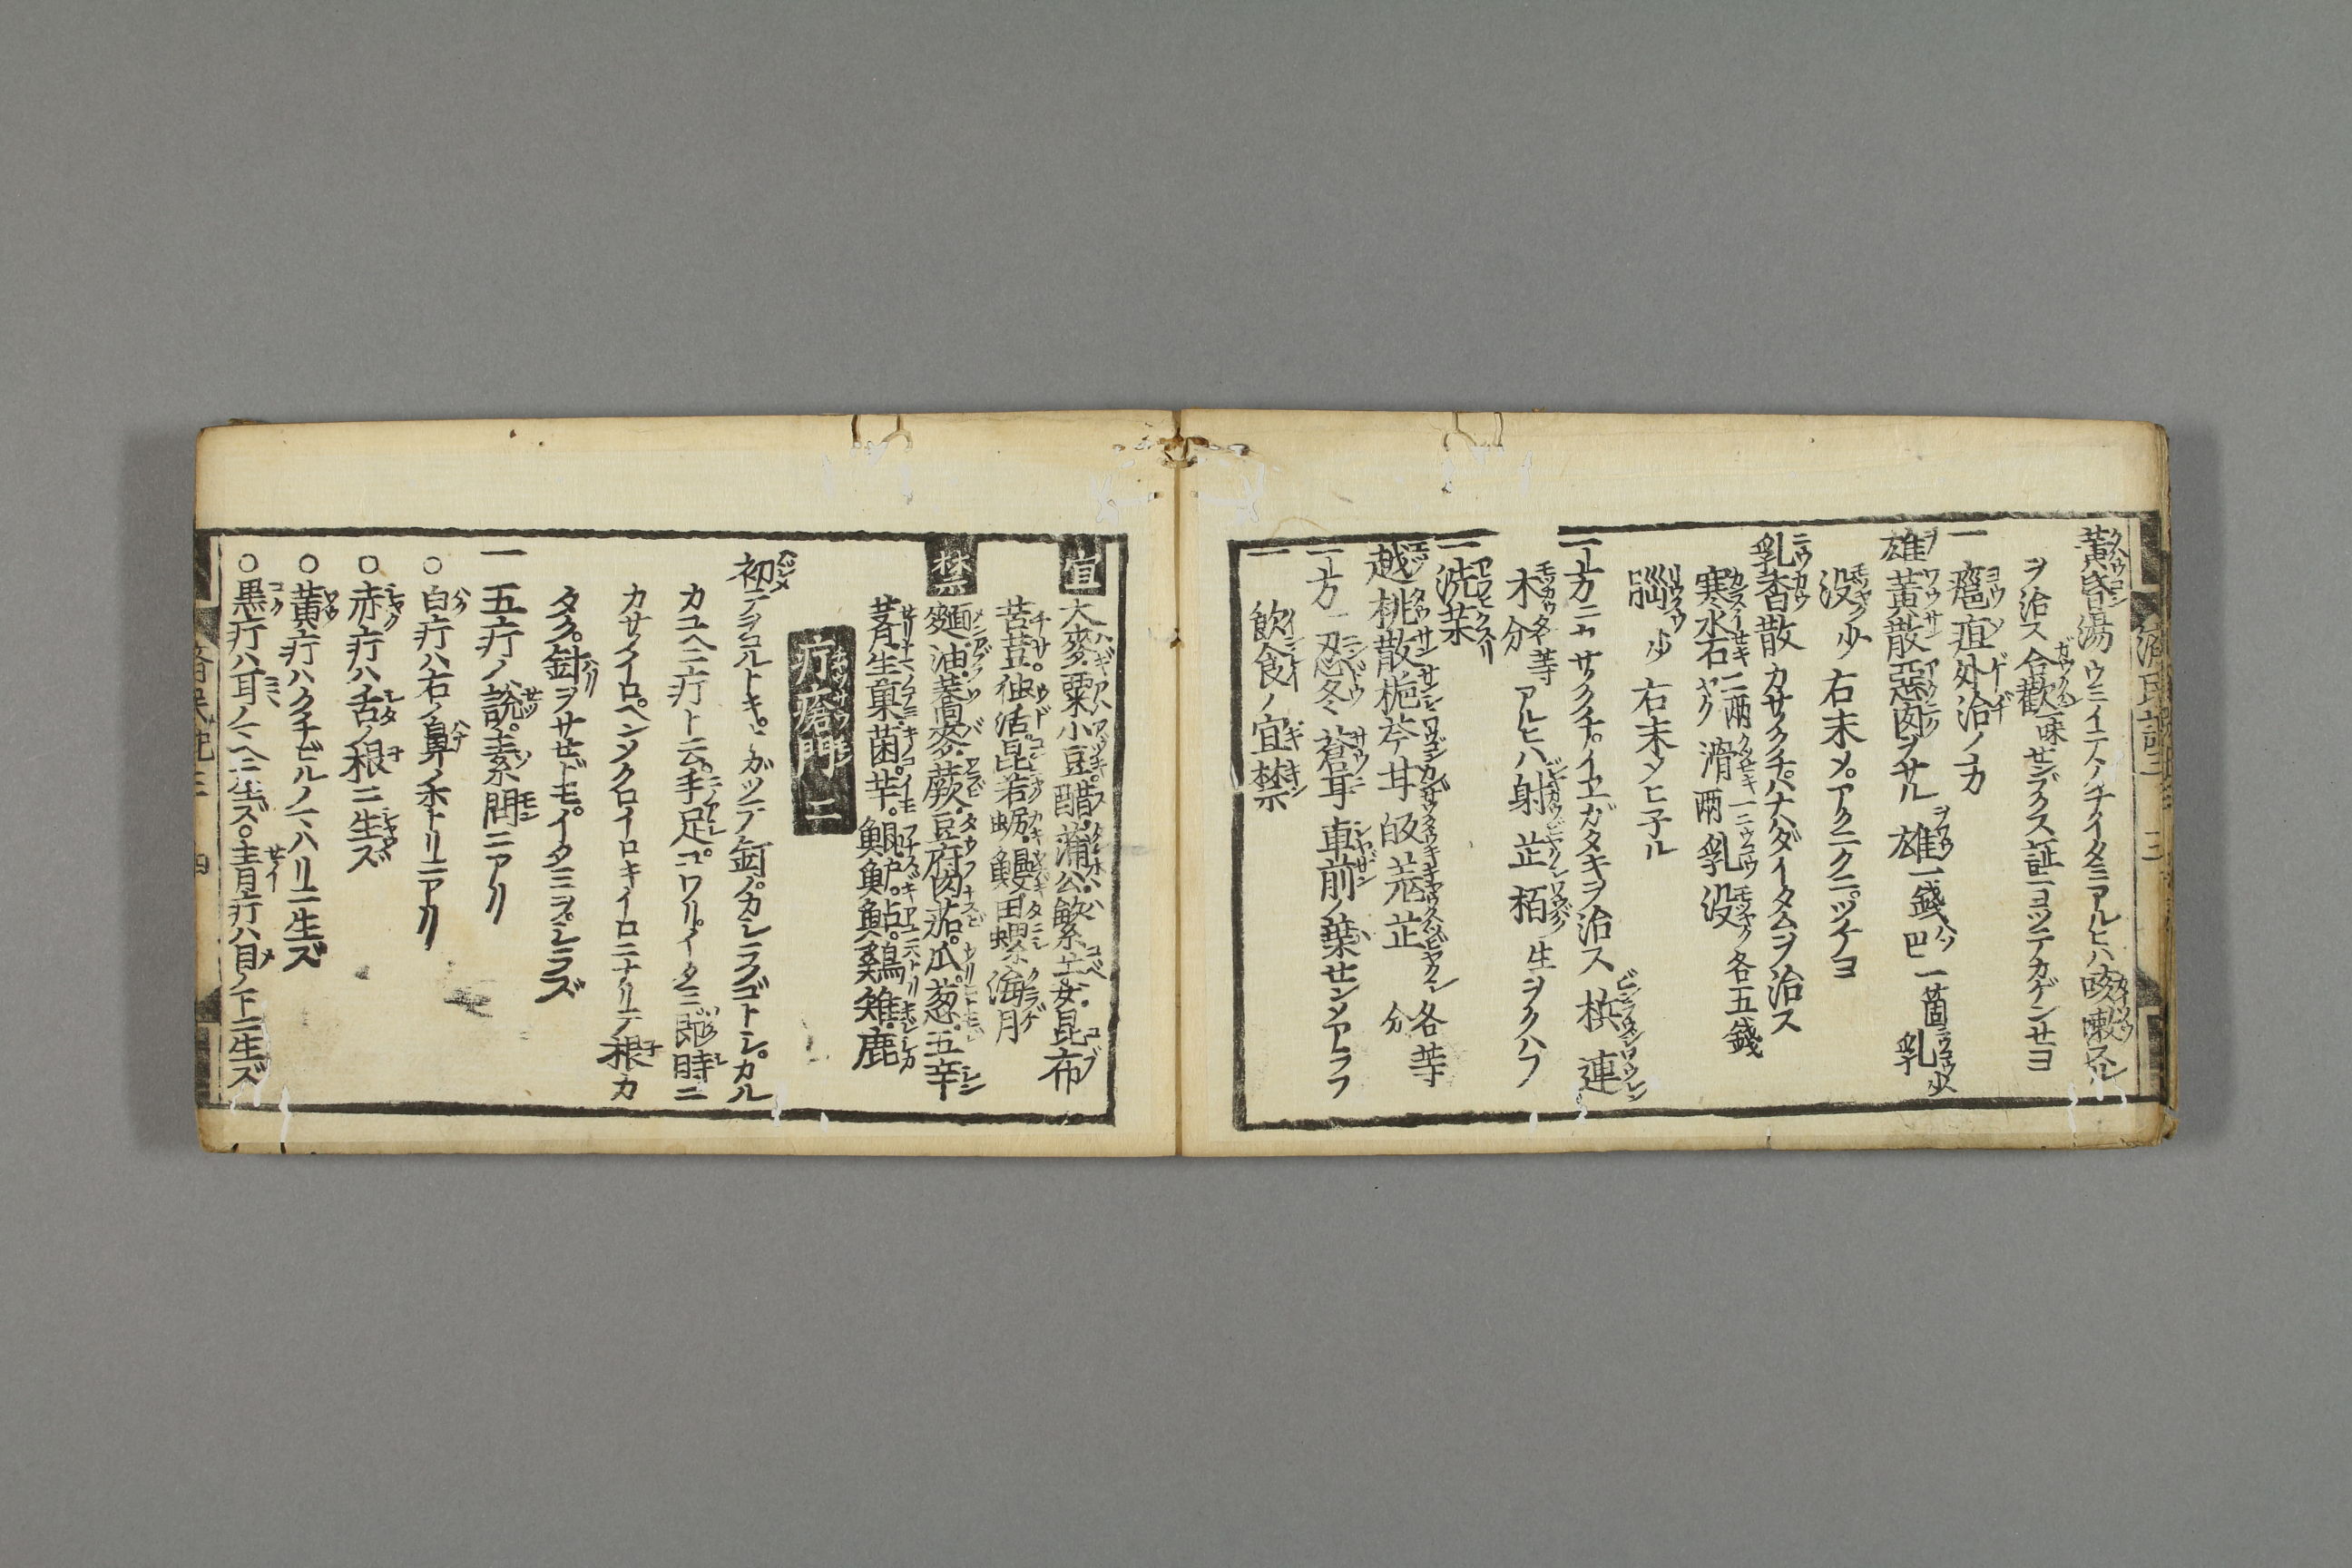 黄昏湯 ウミイテノチイタミアルヒハ咳嗽スル
ヲ治ス 合歓一味センブクス証ニヨツテカゲンサヨ
一 癰疽外治ノ方
雄黄散 悪肉ヲサル 雄一錢 巴一箇 乳少
没少 右末メ。アクニクニ。ツケヨ
乳香散 カサクチ。ハナハダイタムヲ治ス
寒水石二両 滑一両 乳 没各五錢
脳少 右末シヒ子ル
一方ニ カサノクチ。イエガタキヲ治ス 檳 連
木各等分 アルヒハ射 芷 栢 生ヲクハフ
一 洗薬
越桃散 梔 芩 甘 皈 荒 芷 各等分
一方 忍冬 蒼耳 車前ノ葉センシアラフ
一 飲食ノ宜禁
宜 大麥。粟。小豆。醋。蒲公。繁。芋。昆布
苦荳。独活。昆若。蛎。鰻。田螺。海月
禁 麺。油。蕎麥。蕨。豆府。茄。瓜。葱。五辛
芹。生菓。菌。芋。鯛。鱸。鮎。鶏。雉。鹿
疔瘡門 二
初テヲコルトキ。トガツテ釘ノカシラノゴトシ。カル
カユヘニ疔ト云。手足コワリ。イタミ即時ニ
カサノイロ。ヘンシクロイロキイロニナリテ根カ
タク。針ヲサセドモ。イタミヲ。シラズ
一 五疔ノ説。素問ニアリ
○白疔ハ右ノ鼻ノ
○赤疔ハ舌ノ根ニ生ズ
○黄疔ハクチビルノハ
○黒疔ハ耳ノマヘニ生ズ。○青疔ハ目ノ下ニ生ズ